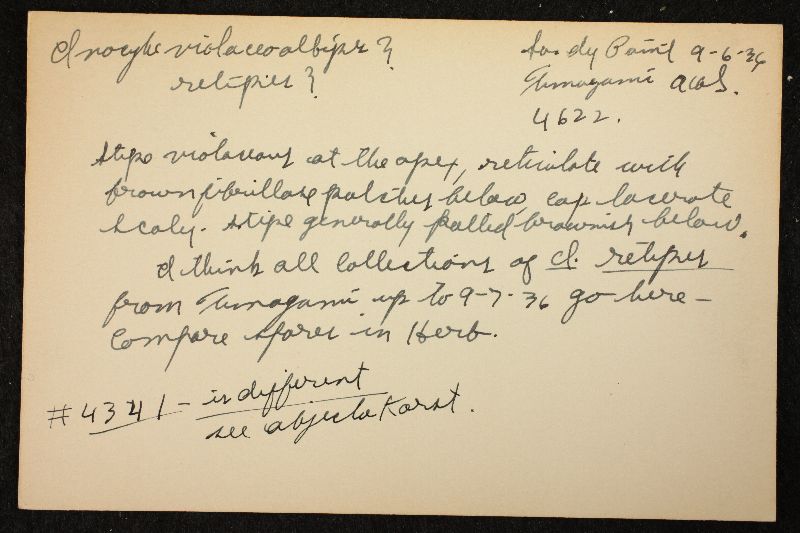 Inocybe violaceoalbipes?
retipes?
Sandy Point 9-6-36
Timagami A.H.S.
4622.
stipe violaceous at the apex, reticulate with
brown fibrillose patches below, cap lacerate
scaly. stipe generally pallid brownish below.
I think all collections of I. retipes
from Timagami up to 9-7-36 go here -
Compare spores in Herb.
#4341 - is different
see abjecta Karst.